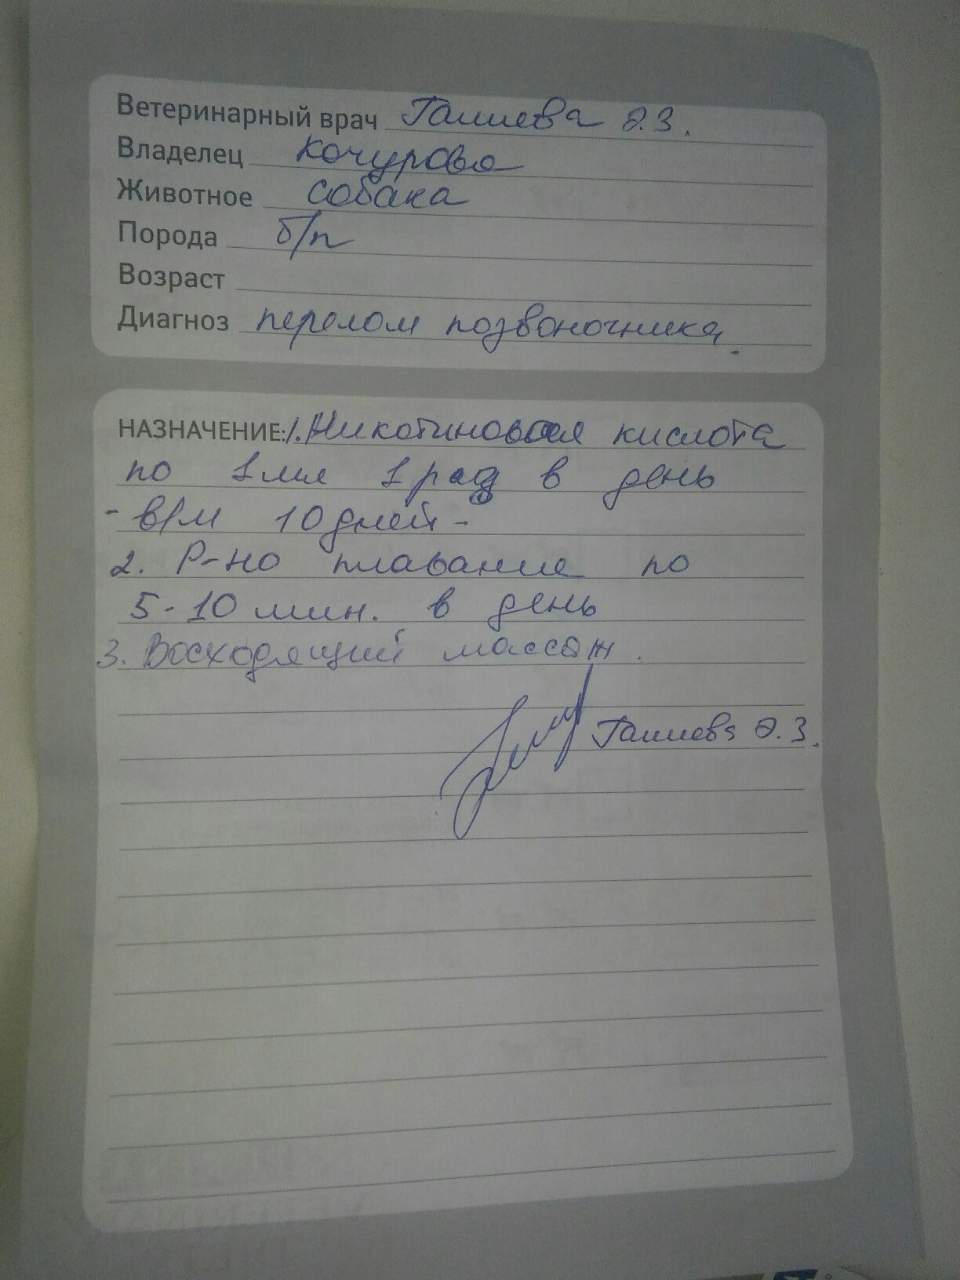 Ветеринарный врач Галиева Э.З.
Владелец Кочурова
Животное собака
Порода б/п
Возраст
Диагноз перелом позвоночника.
НАЗНАЧЕНИЕ: 1. Никотиновая кислота
по 1 мл 1 раз в день
- в/м 10 дней -
2. Р-но плавание по
5-10 мин. в день
3. Восходящий массаж.
Галиева Э.З.